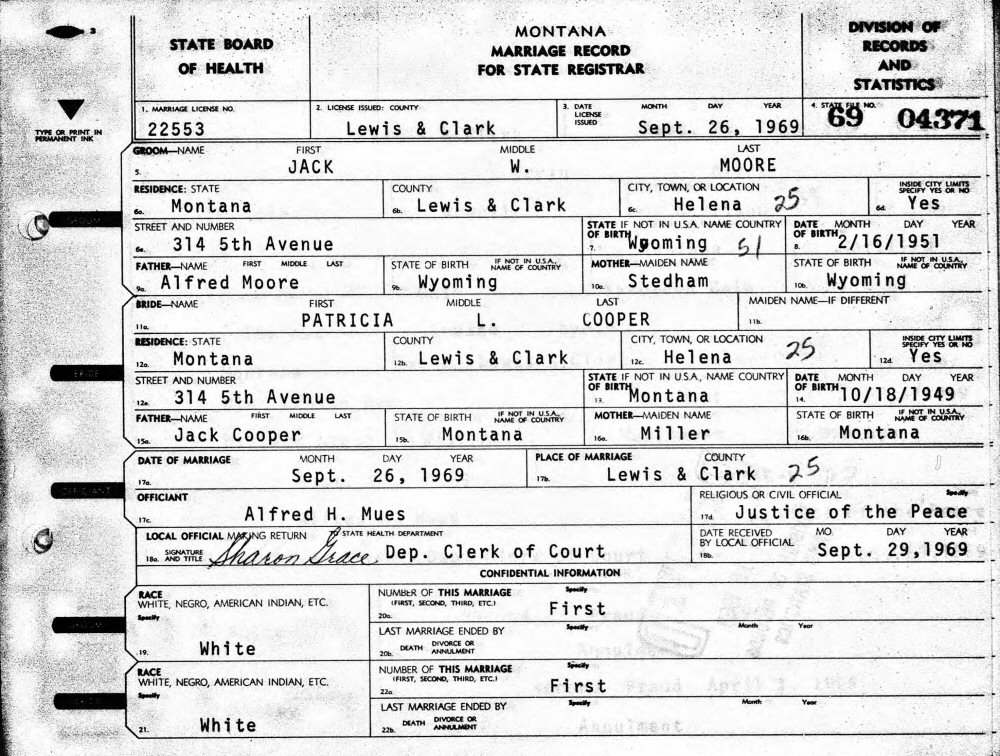 STATE BOARD
OF HEALTH
MONTANA
MARRIAGE RECORD
FOR STATE REGISTRAR
DIVISION OF
RECORDS
AND
STATISTICS
TYPE OR PRINT IN
PERMANENT INK
1. MARRIAGE LICENSE NO. 2. LICENSE ISSUED: COUNTY 3. DATE LICENSE ISSUED MONTH DAY YEAR 4. STATE FILE NO.
22553 Lewis & Clark Sept. 26, 1969 69 04371
GROOM—NAME FIRST MIDDLE LAST
5. JACK W. MOORE
RESIDENCE: STATE COUNTY CITY, TOWN, OR LOCATION INSIDE CITY LIMITS SPECIFY YES OR NO
6a. Montana 6b. Lewis & Clark 6c. Helena 25 6d. Yes
STREET AND NUMBER STATE IF NOT IN U.S.A. NAME COUNTRY OF BIRTH DATE OF BIRTH MONTH DAY YEAR
6e. 314 5th Avenue 7. Wyoming 51 8. 2/16/1951
FATHER—NAME FIRST MIDDLE LAST STATE OF BIRTH IF NOT IN U.S.A., NAME OF COUNTRY MOTHER—MAIDEN NAME STATE OF BIRTH IF NOT IN U.S.A., NAME OF COUNTRY
9a. Alfred Moore 9b. Wyoming 10a. Stedham 10b. Wyoming
BRIDE—NAME FIRST MIDDLE LAST MAIDEN NAME—IF DIFFERENT
11a. PATRICIA L. COOPER 11b.
RESIDENCE: STATE COUNTY CITY, TOWN, OR LOCATION INSIDE CITY LIMITS SPECIFY YES OR NO
12a. Montana 12b. Lewis & Clark 12c. Helena 25 12d. Yes
STREET AND NUMBER STATE IF NOT IN U.S.A., NAME COUNTRY OF BIRTH DATE OF BIRTH MONTH DAY YEAR
12e. 314 5th Avenue 13. Montana 14. 10/18/1949
FATHER—NAME FIRST MIDDLE LAST STATE OF BIRTH IF NOT IN U.S.A., NAME OF COUNTRY MOTHER—MAIDEN NAME STATE OF BIRTH IF NOT IN U.S.A., NAME OF COUNTRY
15a. Jack Cooper 15b. Montana 16a. Miller 16b. Montana
DATE OF MARRIAGE MONTH DAY YEAR PLACE OF MARRIAGE COUNTY
17a. Sept. 26, 1969 17b. Lewis & Clark 25
OFFICIANT RELIGIOUS OR CIVIL OFFICIAL Specify
17c. Alfred H. Mues 17d. Justice of the Peace
LOCAL OFFICIAL MAKING RETURN TO STATE HEALTH DEPARTMENT DATE RECEIVED BY LOCAL OFFICIAL MO. DAY YEAR
18a. SIGNATURE AND TITLE Sharon Grace Dep. Clerk of Court 18b. Sept. 29,1969
CONFIDENTIAL INFORMATION
RACE NUMBER OF THIS MARRIAGE Specify
WHITE, NEGRO, AMERICAN INDIAN, ETC. (FIRST, SECOND, THIRD, ETC.)
Specify 20a. First
LAST MARRIAGE ENDED BY Specify Month Year
19. White 20b. DEATH DIVORCE OR ANNULMENT
RACE NUMBER OF THIS MARRIAGE Specify
WHITE, NEGRO, AMERICAN INDIAN, ETC. (FIRST, SECOND, THIRD, ETC.)
Specify 22a. First
LAST MARRIAGE ENDED BY Specify Month Year
21. White 22b. DEATH DIVORCE OR ANNULMENT